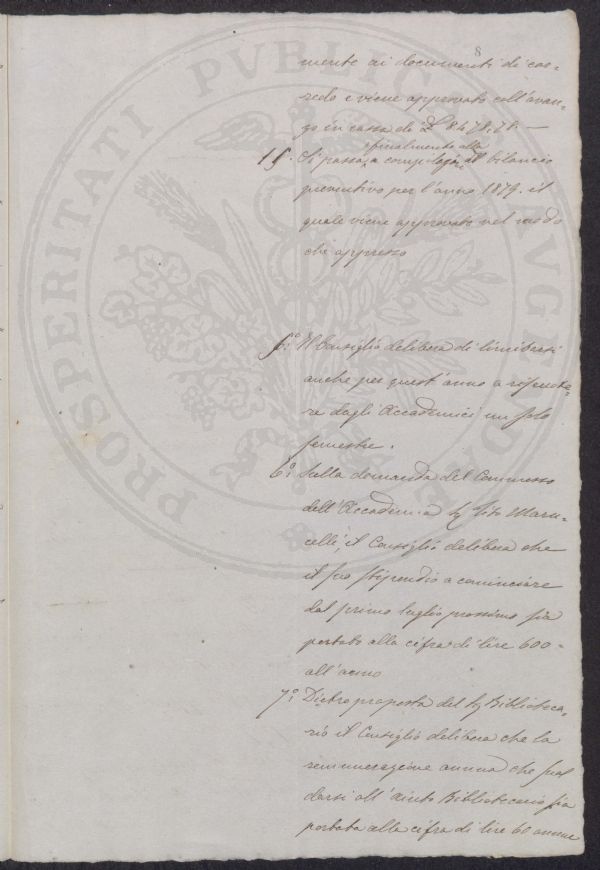 8
mente ai documenti di cor-
redo e viene approvato coll'avan-
zo in cassa di £ 8478.78.—
finalmente alla
Si passa, a compilazione bilancio
preventivo per l'anno 1879. il
quale viene approvato nel modo
che appresso
5.° Il Consiglio delibera di limitarsi
anche per quest'anno a riscuote-
re dagli Accademici un solo
semestre.
6.° Sulla domanda del Commesso
dell'Accademia Sig Vito Maru-
celli, il Consiglio delibera che
il suo stipendio a cominciare
dal primo luglio prossimo sia
portato alla cifra di lire 600-
all'anno
7.° Dietro proposta del Sig Biblioteca-
rio il Consiglio delibera che la
remunerazione annua che suol
darsi all'aiuto Bibliotecario sia
portata alla cifra di lire 60 annue
PROSPERITATI PUBLICAE AUGENDAE